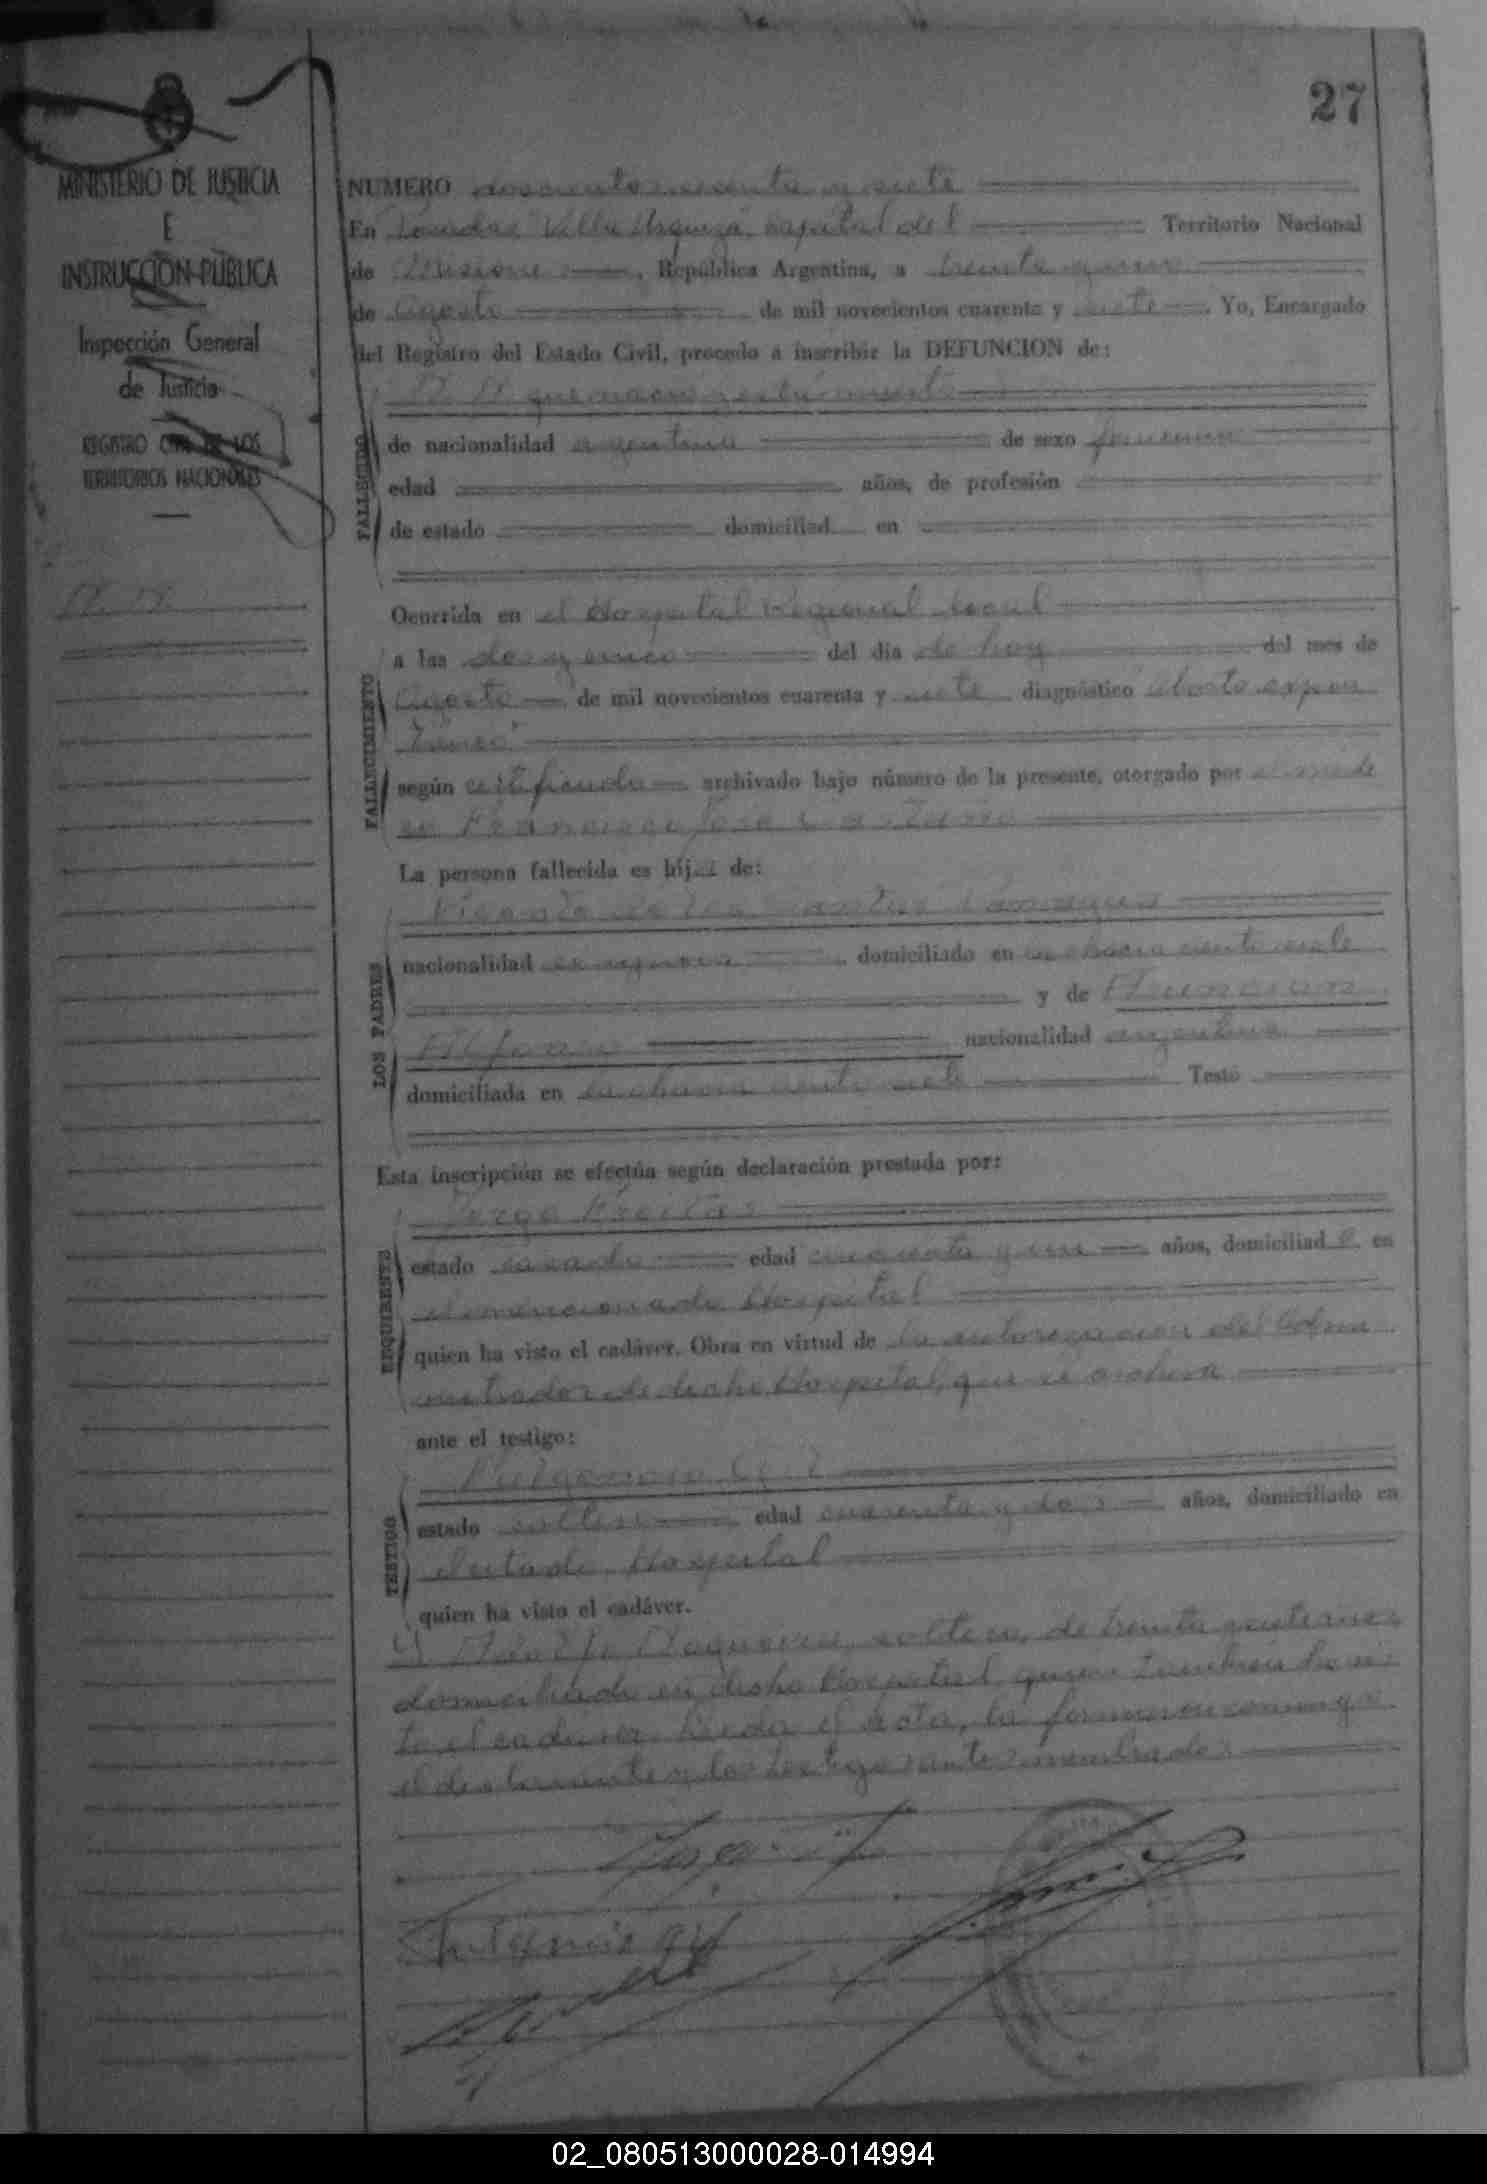 27
MINISTERIO DE JUSTICIA
E
INSTRUCCION PUBLICA
Inspección General
de Justicia
REGISTRO CIVIL DE LOS
TERRITORIOS NACIONALES
N. N.
NUMERO doscientos sesenta y siete
En Posadas "Villa Urquiza" capital del Territorio Nacional
de Misiones, República Argentina, a treinta y uno
de Agosto de mil novecientos cuarenta y siete. Yo, Encargado
del Registro del Estado Civil, procedo a inscribir la DEFUNCION de:
N. N. que nació y está muerta
FALLECIDO
de nacionalidad argentina de sexo femenino
edad años, de profesión
de estado domiciliad en
FALLECIMIENTO
Ocurrida en el Hospital Regional local
a las dos y cinco del día de hoy del mes de
Agosto de mil novecientos cuarenta y siete diagnóstico "Aborto expon
táneo"
según certificado archivado bajo número de la presente, otorgado por el médi
co Francisco José Castaño
La persona fallecida es hija de:
LOS PADRES
Vicente de los Santos
nacionalidad domiciliado en la chacra ciento siete
y de Asuncion
Alfonso nacionalidad argentina
domiciliada en la chacra ciento siete Testó
Esta inscripción se efectúa según declaración prestada por:
REQUIRENTE
Jorge Freitas
estado casado edad cincuenta y un años, domiciliado en
el mencionado Hospital
quien ha visto el cadáver. Obra en virtud de la autorizacion del Admi
nistrador de dicho Hospital, que se archiva
ante el testigo:
TESTIGO
Fulgencio Gil
estado soltero edad cuarenta y dos años, domiciliado en
el citado Hospital
quien ha visto el cadáver.
Y Adolfo soltero, de treinta y siete años
domiciliado en dicho Hospital, quien también ha vis
to el cadáver. Leida el acta, la firmaron conmigo
el declarante y los testigos antes nombrados
02_080513000028-014994